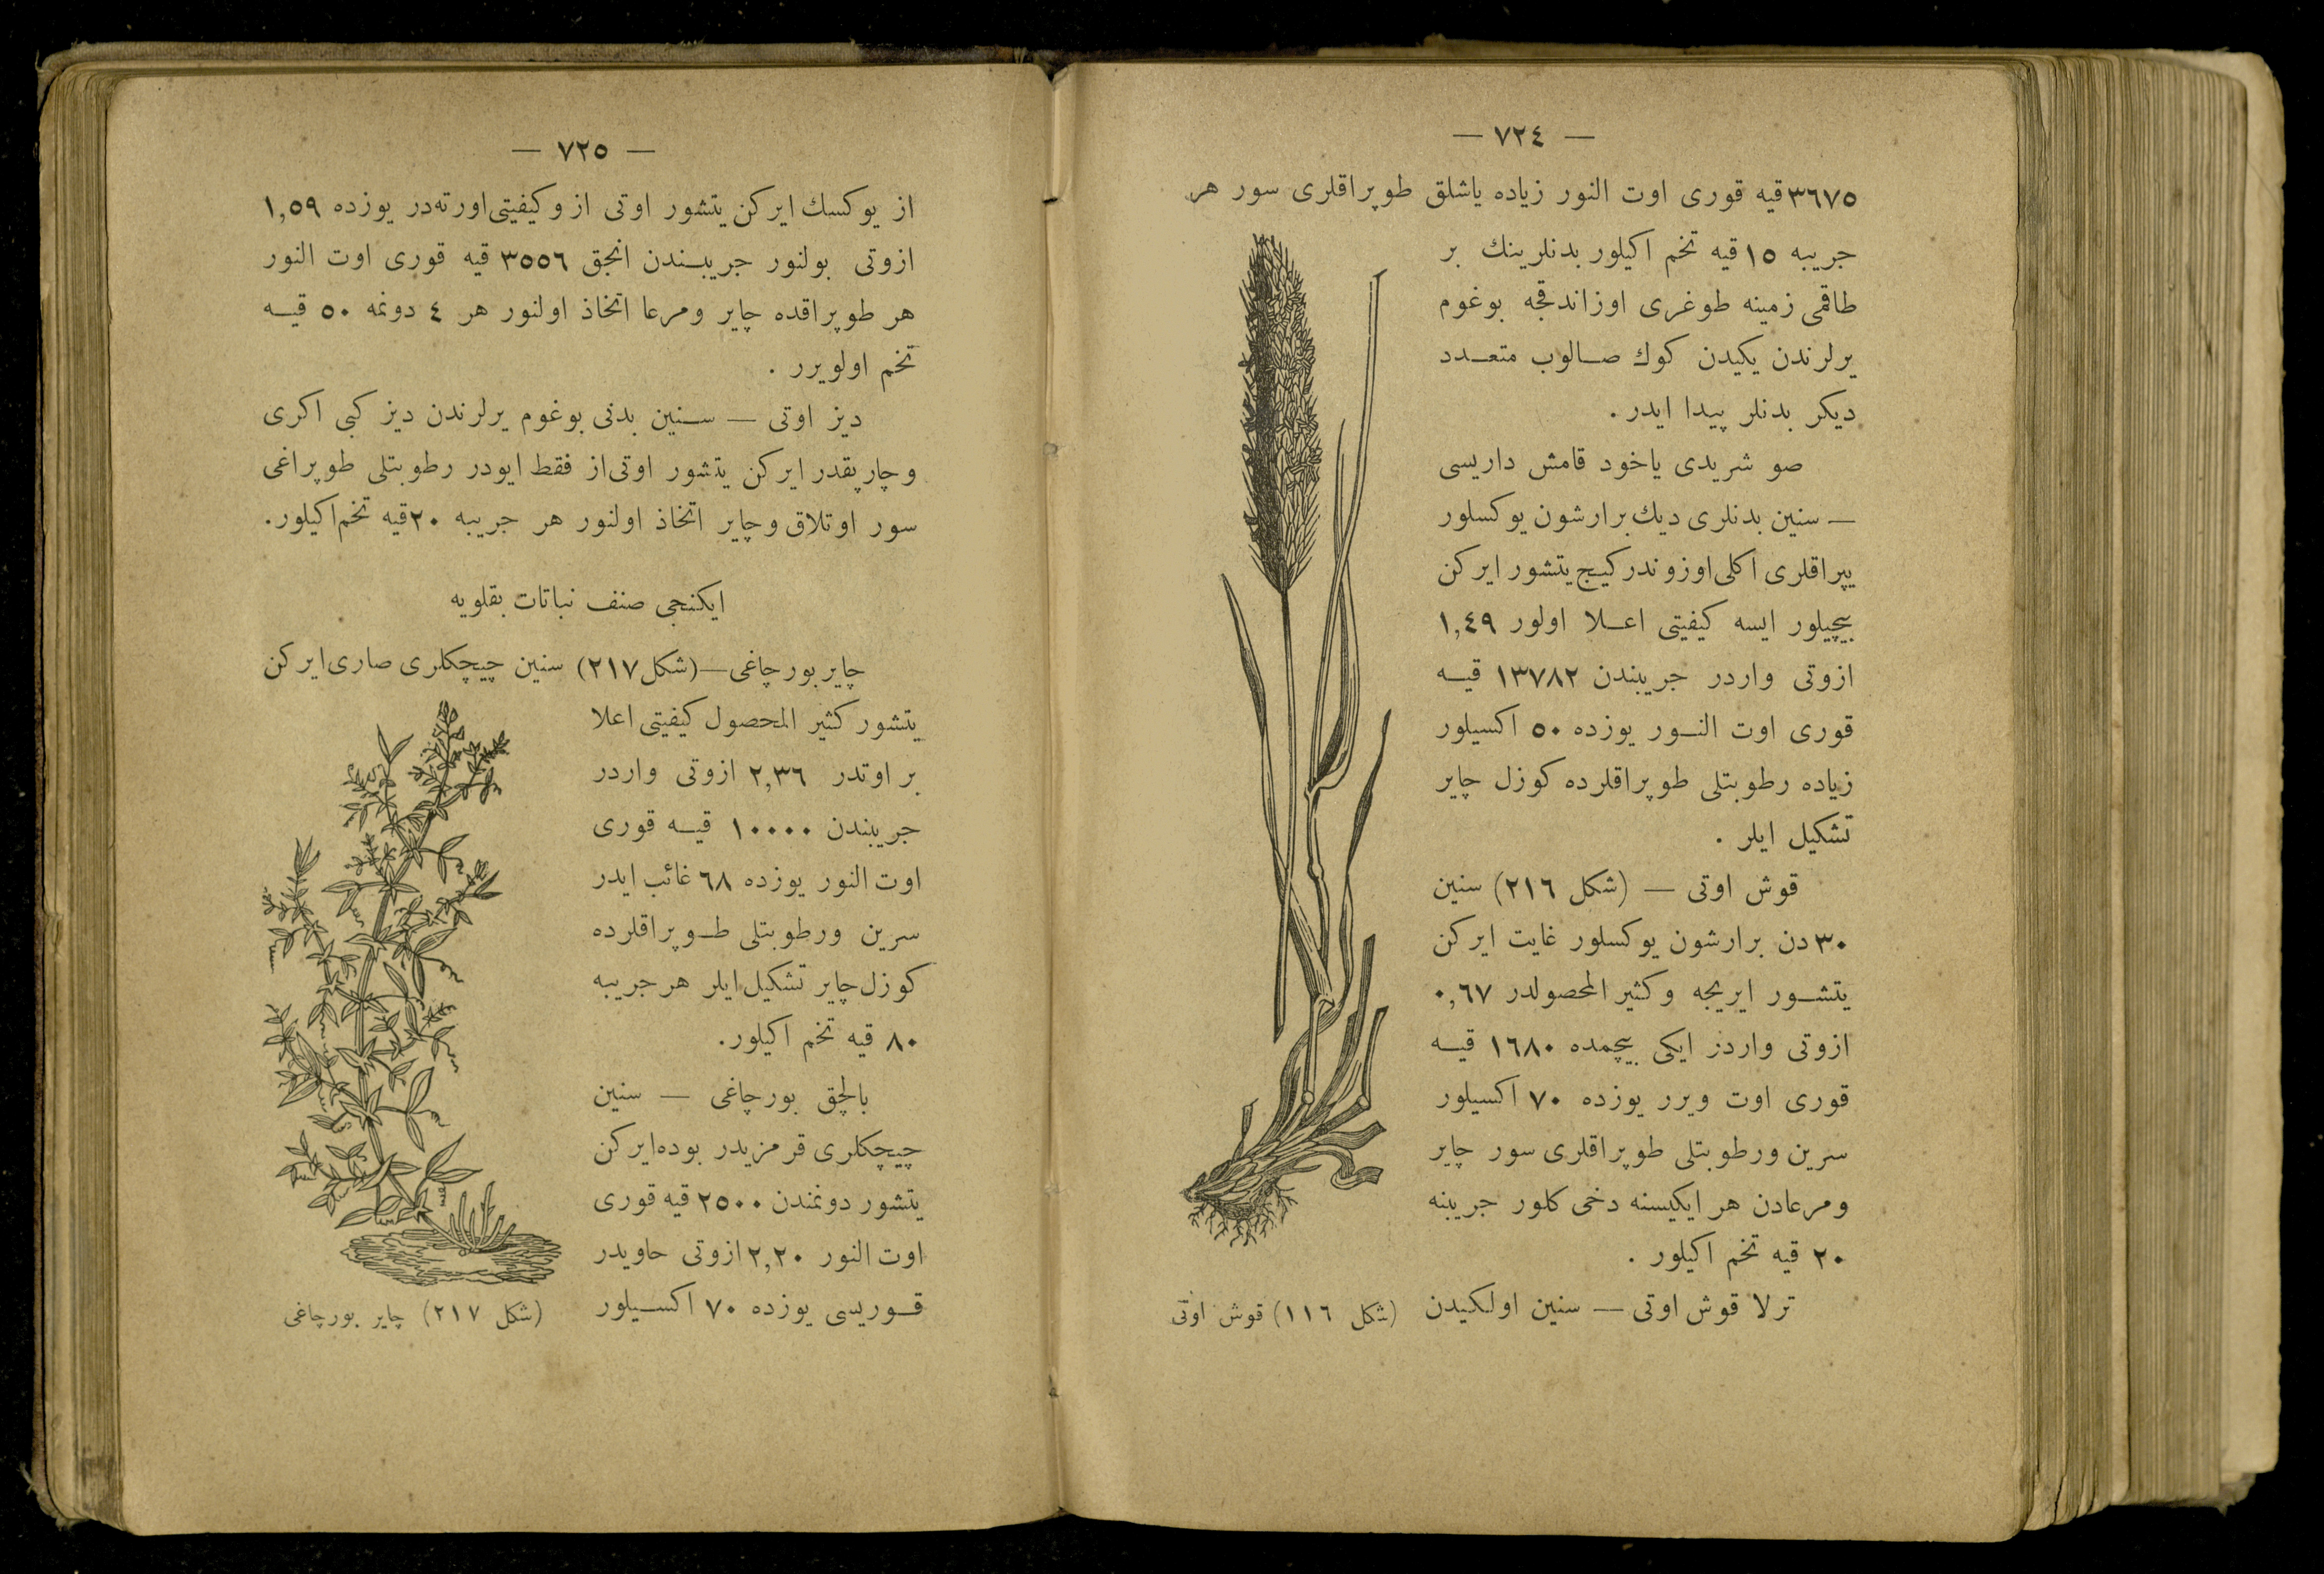 — ٧٢٤ —
٣٦٧٥ قيه قورى اوت النور زياده ياشلق طوپراقلرى سور هر
جريبه ١٥ قيه تخم اكيلور بدنلرينك بر
طاقمى زمينه طوغرى اوزاندقجه بوغوم
يرلرندن يكيدن كوك صالوب متعدد
ديكر بدنلر پيدا ايدر .
صو شريدى ياخود قامش داريسى
— سنين بدنلرى ديك بر ارشون يوكسلور
يپراقلرى اكلى اوزوندر كيج يتشور ايركن
بيچيلور ايسه كيفيتى اعلا اولور ١,٤٩
ازوتى واردر جريبندن ١٣٧٨٢ قيه
قورى اوت النور يوزده ٥٠ اكسيلور
زياده رطوبتلى طوپراقلرده كوزل چاير
تشكيل ايلر .
قوش اوتى — (شكل ٢١٦) سنين
٣٠ دن بر ارشون يوكسلور غايت ايركن
يتشور ايريجه و كثير المحصولدر ٠,٦٧
ازوتى واردر ايكى بيچمده ١٦٨٠ قيه
قورى اوت ويرر يوزده ٧٠ اكسيلور
سرين و رطوبتلى طوپراقلرى سور چاير
ومرعادن هر ايكيسنه دخى كلور جريبنه
٢٠ قيه تخم اكيلور .
ترلا قوش اوتى — سنين اولكيدن
(شكل ١١٦) قوش اوتى
— ٧٢٥ —
از يوكسك ايركن يتشور اوتى از و كيفيتى اورته در يوزده ١,٥٩
ازوتى بولنور جريبندن انجق ٣٥٥٦ قيه قورى اوت النور
هر طوپراقده چاير ومرعا اتخاذ اولنور هر ٤ دونمه ٥٠ قيه
تخم اولويرر .
ديز اوتى — سنين بدنى بوغوم يرلرندن ديز كبى اكرى
و چارپقدر ايركن يتشور اوتى از فقط ايودر رطوبتلى طوپراغى
سور اوتلاق و چاير اتخاذ اولنور هر جريبه ٢٠ قيه تخم اكيلور.
ايكنجى صنف نباتات بقلويه
چاير بورچاغى — (شكل ٢١٧) سنين چيچكلرى صارى ايركن
يتشور كثير المحصول كيفيتى اعلا
بر اوتدر ٢,٣٦ ازوتى واردر
جريبندن ١٠٠٠٠ قيه قورى
اوت النور يوزده ٦٨ غائب ايدر
سرين ورطوبتلى طوپراقلرده
كوزل چاير تشكيل ايلر هر جريبه
٨٠ قيه تخم اكيلور.
بالچق بورچاغى — سنين
چيچكلرى قرمزيدر بوده ايركن
يتشور دونمندن ٢٥٠٠ قيه قورى
اوت النور ٢,٢٠ ازوتى حاويدر
قوريسى يوزده ٧٠ اكسيلور
(شكل ٢١٧) چاير بورچاغى